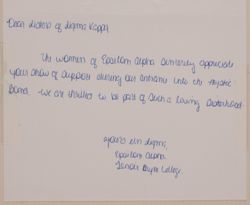 Dear Sisters of Sigma Kappa,
The women of Epsilon Alpha sincerely appreciate
your show of support during our entrance into the mystic
bond. We are thrilled to be part of such a loving sisterhood.
Yours in Sigma,
Epsilon Alpha
Lenoir Rhyne College